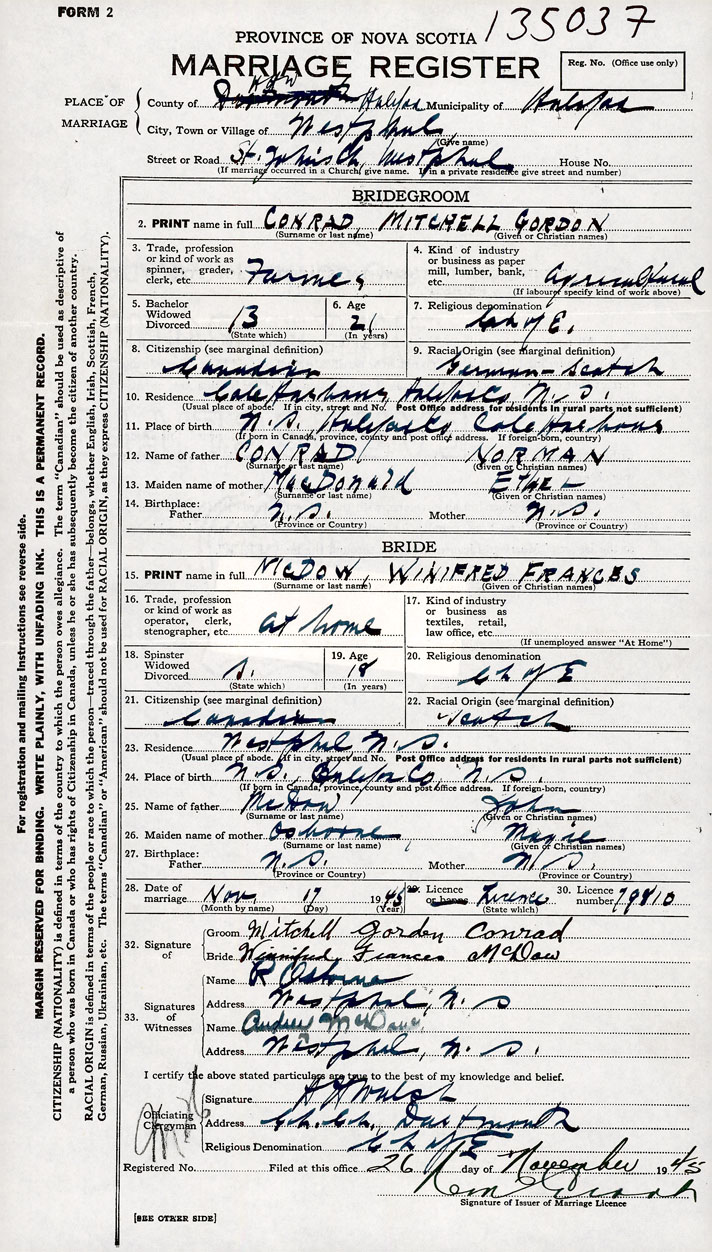 FORM 2
135037
PROVINCE OF NOVA SCOTIA
MARRIAGE REGISTER
Reg. No. (Office use only)
PLACE OF MARRIAGE
County of Halifax Municipality of Halifax
City, Town or Village of Westphal
(Give name)
Street or Road St. John's Ch, Westphal House No.
(If marriage occurred in a Church, give name. If in a private residence give street and number)
BRIDEGROOM
2. PRINT name in full CONRAD, MITCHELL GORDON
(Surname or last name) (Given or Christian names)
3. Trade, profession or kind of work as spinner, grader, clerk, etc. Farmer
4. Kind of industry or business as paper mill, lumber, bank, etc. Agricultural
(If labourer specify kind of work above)
5. Bachelor Widowed Divorced B
(State which)
6. Age 21
(In years)
7. Religious denomination Ch of E.
8. Citizenship (see marginal definition) Canadian
9. Racial Origin (see marginal definition) German-Scotch
10. Residence Cole Harbour, Halifax Co, N. S.
(Usual place of abode. If in city, street and No. Post Office address for residents in rural parts not sufficient)
11. Place of birth N.S. Halifax Co Cole Harbour
(If born in Canada, province, county and post office address. If foreign-born, country)
12. Name of father CONRAD NORMAN
(Surname or last name) (Given or Christian names)
13. Maiden name of mother MacDonald ETHEL
(Surname or last name) (Given or Christian names)
14. Birthplace: Father N.S. Mother N.S.
(Province or Country) (Province or Country)
BRIDE
15. PRINT name in full McDOW, WINIFRED FRANCES
(Surname or last name) (Given or Christian names)
16. Trade, profession or kind of work as operator, clerk, stenographer, etc. at home
17. Kind of industry or business as textiles, retail, law office, etc.
(If unemployed answer "At Home")
18. Spinster Widowed Divorced S.
(State which)
19. Age 18
(In years)
20. Religious denomination Ch of E
21. Citizenship (see marginal definition) Canadian
22. Racial Origin (see marginal definition) Scotch
23. Residence Westphal N. S.
(Usual place of abode. If in city, street and No. Post Office address for residents in rural parts not sufficient)
24. Place of birth N.S., Halifax Co, N. S.
(If born in Canada, province, county and post office address. If foreign-born, country)
25. Name of father McDow John
(Surname or last name) (Given or Christian names)
26. Maiden name of mother Osborne
(Surname or last name) (Given or Christian names)
27. Birthplace: Father N.S. Mother N.S.
(Province or Country) (Province or Country)
28. Date of marriage Nov. 17 1945
(Month by name) (Day) (Year)
29. Licence or banns Licence
(State which)
30. Licence number 79810
32. Signature of
Groom Mitchell Gordon Conrad
Bride Winnifred Frances McDow
33. Signatures of Witnesses
Name R Osborne
Address Westphal, N. S
Name Audrey McDow
Address Westphal, N. S.
I certify the above stated particulars are true to the best of my knowledge and belief.
Officiating Clergyman
Signature
Address Ch. Ch. Dartmouth
Religious Denomination Ch of E
Registered No. Filed at this office 26 day of November 1945
Signature of Issuer of Marriage Licence
[SEE OTHER SIDE]
For registration and mailing instructions see reverse side.
MARGIN RESERVED FOR BINDING. WRITE PLAINLY, WITH UNFADING INK. THIS IS A PERMANENT RECORD.
CITIZENSHIP (NATIONALITY) is defined in terms of the country to which the person owes allegiance. The term "Canadian" should be used as descriptive of
a person who was born in Canada or who has rights of Citizenship in Canada, unless he or she has subsequently become the citizen of another country.
RACIAL ORIGIN is defined in terms of the people or race to which the person—traced through the father—belongs, whether English, Irish, Scottish, French,
German, Russian, Ukrainian, etc. The terms "Canadian" or "American" should not be used for RACIAL ORIGIN, as they express CITIZENSHIP (NATIONALITY).